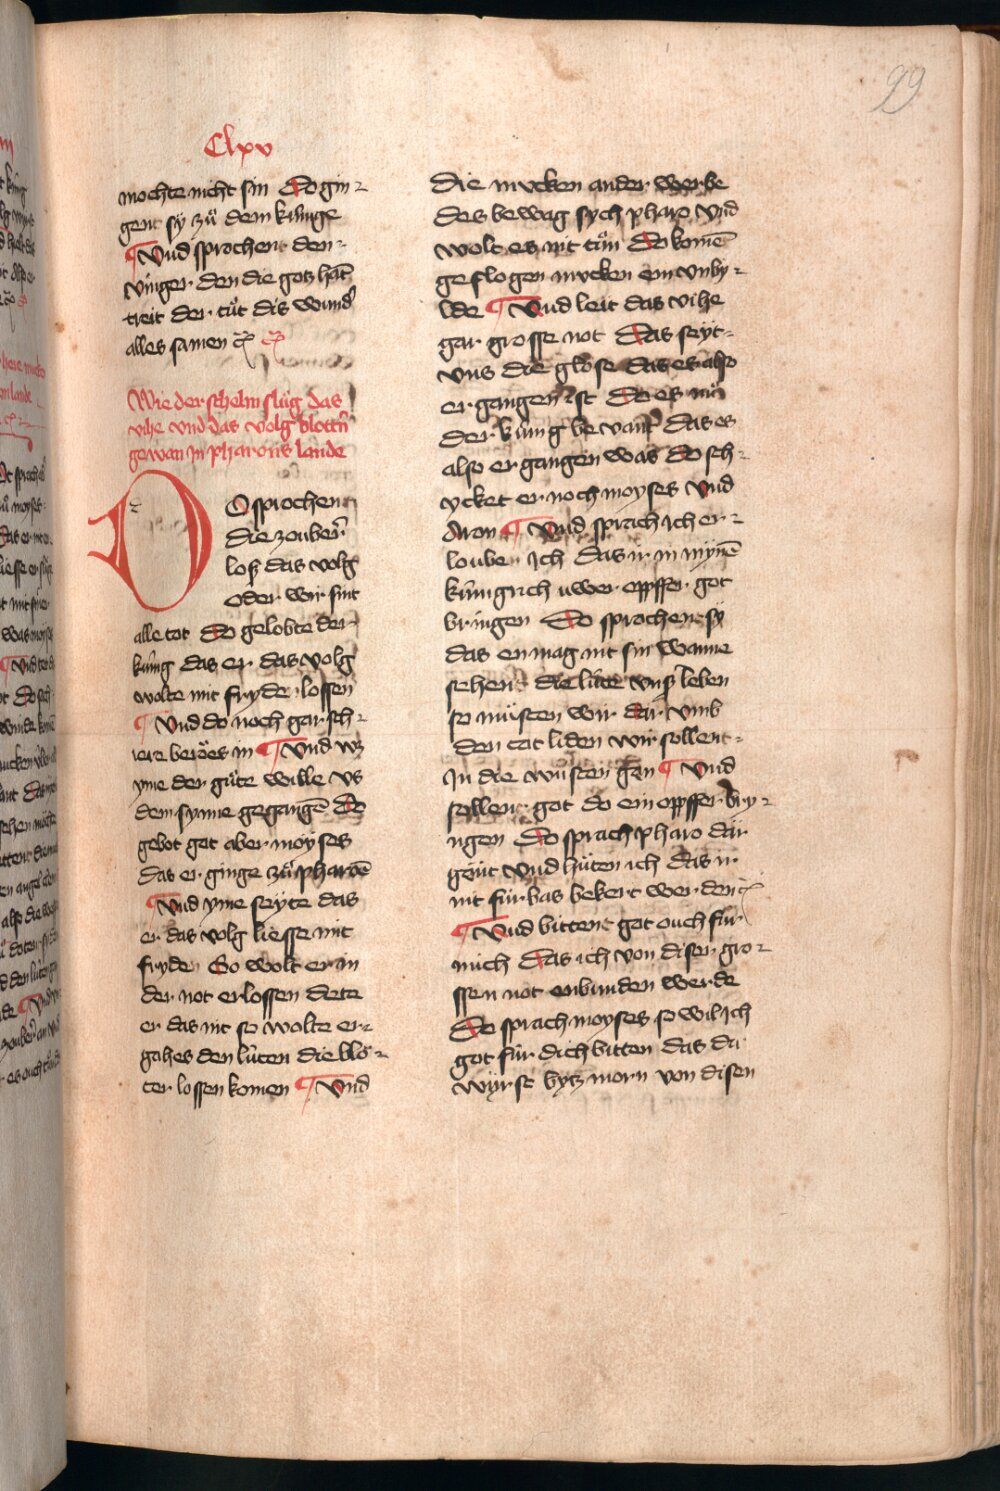 99
Clxv
mochte nicht sin Do gin⸗
gent sÿ zuͦ dem kúnige
¶ Vnd sprochent den⸗
vinger den die gotz hāt
treit der tuͦt dis wund͛
alles samen
Wie der schelm sluͦg das
vihe vnd das volg blottn̄
gewan in pharons lande
DO sprochen
die zouber͛
los das volg
oder wir sint
alle tot Do gelobte der
kúnig das er das volg
wolte mit fryde lossen
¶ Vnd do noch gar sch⸗
iere beroͤes in ¶ Vnd wz
yme der guͤte wille vs
dem synne gegangē Do
gebot got aber moyses
das er ginge zuͦ pharoē
¶ Vnd yme seyte das
er das volg liesse mit
fryden So wolt er in
der not erlossen dete
er das nit so wolte er⸗
gahes den lúten die blo⸗
ter lossen komen ¶ Vnd
die mucken ander werbe
Des bewag sych pharo vnd
wolt es nit tuͦn Do komē
geflogen mucken ein vnby⸗
lde ¶ Vnd leit das vihe
gar grosse not Das seyt⸗
vns die glose das es also
ergangen ist Do es nuͦ
der kúnig bevant das es
also ergangen was Do sch⸗
ycket er noch moyses vnd
Aron ¶ Vnd sprach ich er⸗
louben ich das ir in mynē
kúnigrich uwer oppffer got
bringen Do sprochent sÿ
das en mag nit sin wanne
sehent die lúte vnser leben
so muͤsten wir dar vmb
den tot liden wir sollent⸗
In die wuͤsten gen ¶ Vnd
sollent got do ein oppffer bry⸗
ngen Do sprach pharo dar
gont vnd huͤten ich das ir
nit fúrbas bekert werden
¶ Vnd bittent got ouch fúr
mich Das ich von diser gro⸗
ssen not enbunden werde
Do sprach moyses so wil ich
got fúr dich bitten das du
wurst bytz morn von disen